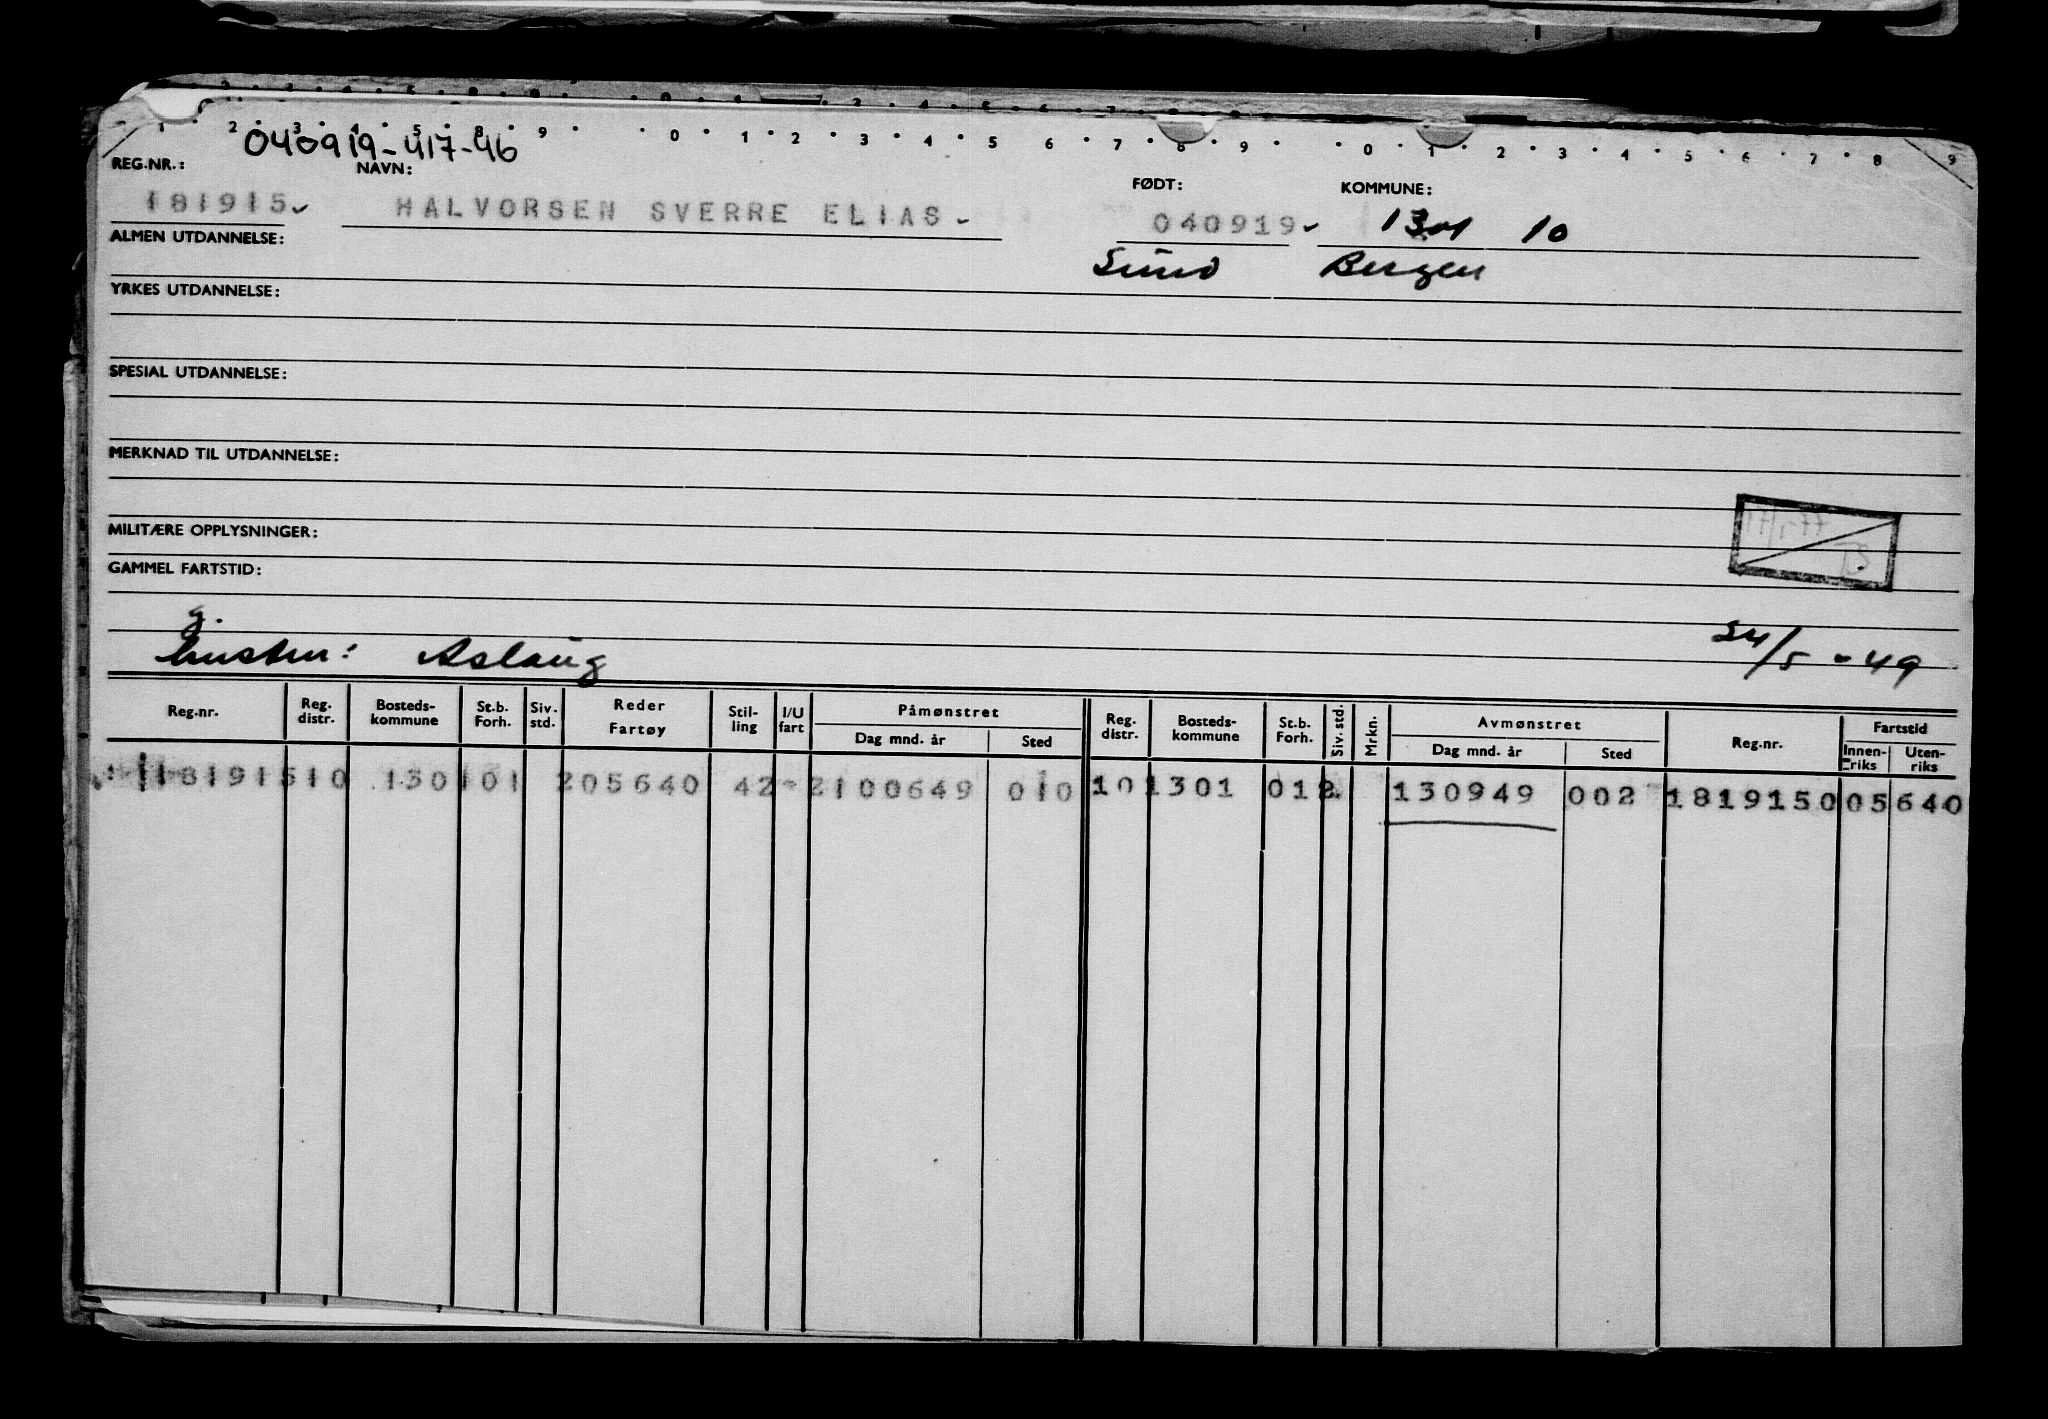 1 · 2 · 3 · 4 · 5 · 8 · 9 · · 0 · 1 · 2 · 3 · 4 · 5 6 · 7 · 8 · 9 · · 0 · 1 · 2 · 3 · 4 · 5 · 6 · 7 · 8 9
040919-417-46
REG.NR.: NAVN: FØDT: KOMMUNE:
181915 HALVORSEN SVERRE ELIAS 040919 1301 10
ALMEN UTDANNELSE: Sund Bergen
YRKES UTDANNELSE:
SPESIAL UTDANNELSE:
MERKNAD TIL UTDANNELSE:
MILITÆRE OPPLYSNINGER:
GAMMEL FARTSTID:
g.
hustru: Aslaug 24/5 - 49
Reg.nr. Reg. distr. Bosteds-kommune St.b. Forh. Siv. std. Reder Fartøy Stil-ling I/U fart Påmønstret Dag mnd. år Sted Reg. distr. Bosteds-kommune St.b. Forh. Siv. std. Mrkn. Avmønstret Dag mnd. år Sted Reg.nr. Fartstid Innen-riks Uten-riks
181915 10 1301 01 205640 42 2 100649 010 10 1301 012 130949 002 1819150 05 640